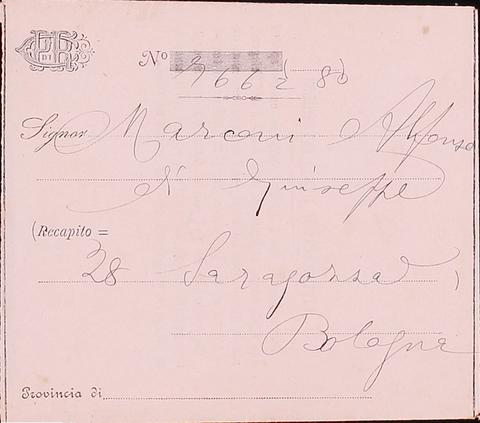 Nº
Signor Marconi Alfonso
di Giuseppe
(Recapito =
28 Saragozza
Bologna
Provincia di